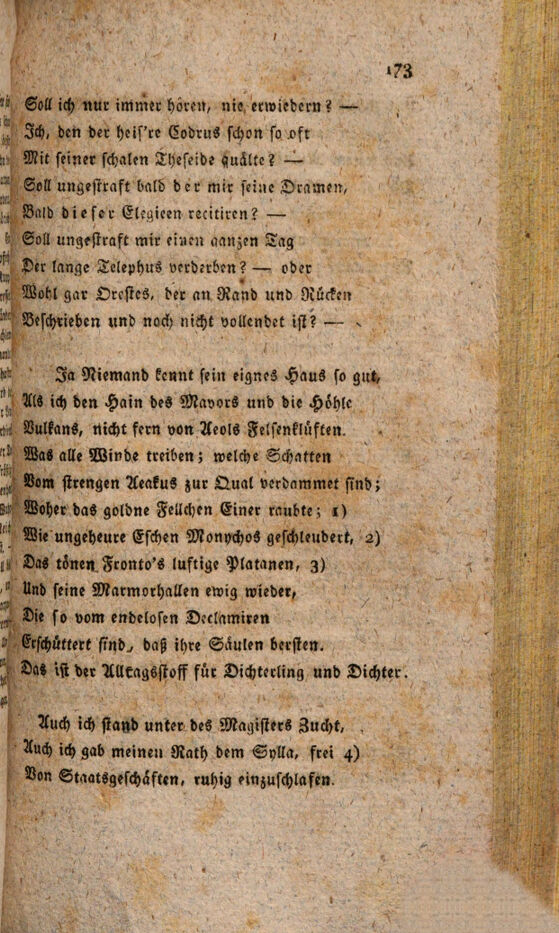 173
Soll ich nur immer hören, nie erwiedern? —
Ich, den der heis're Codrus schon so oft
Mit seiner schalen Theseide quälte? —
Soll ungestraft bald der mir seine Dramen,
Bald dieser Elegieen recitiren? —
Soll ungestraft mir einen ganzen Tag
Der lange Telephus verderben? — oder
Wohl gar Orestes, der an Rand und Rücken
Beschrieben und noch nicht vollendet ist? —
Ja Niemand kennt sein eignes Haus so gut,
Als ich den Hain des Mavors und die Höhle
Vulkans, nicht fern von Aeols Felsenklüften.
Was alle Winde treiben; welche Schatten
Vom strengen Aeakus zur Qual verdammet sind;
Woher das goldne Fellchen Einer raubte; 1)
Wie ungeheure Eschen Monychos geschleudert, 2)
Das tönen Fronto's luftige Platanen, 3)
Und seine Marmorhallen ewig wieder,
Die so vom endelosen Declamiren
Erschüttert sind, daß ihre Säulen bersten.
Das ist der Alltagsstoff für Dichterling und Dichter.
Auch ich stand unter des Magisters Zucht,
Auch ich gab meinen Rath dem Sylla, frei 4)
Von Staatsgeschäften, ruhig einzuschlafen.